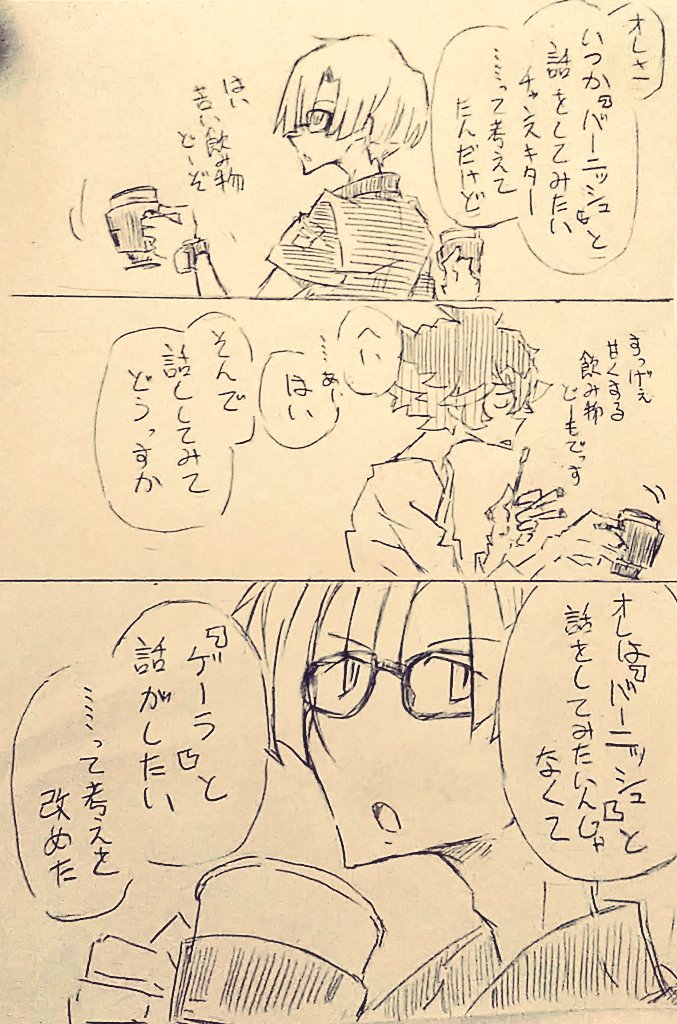 オレさ
いつか『バーニッシュ』と
話をしてみたい
チャンスキター
……って考えて
たんだけど
はい
苦い飲み物
どーぞ
すっげぇ
甘くする
飲み物
どーもでっす
へい
……あー
はい
そんで
話ししてみて
どうっすか
オレは『バーニッシュ』と
話をしてみたいんじゃ
なくて
『ゲーラ』と
話がしたい
……って考えを
改めた